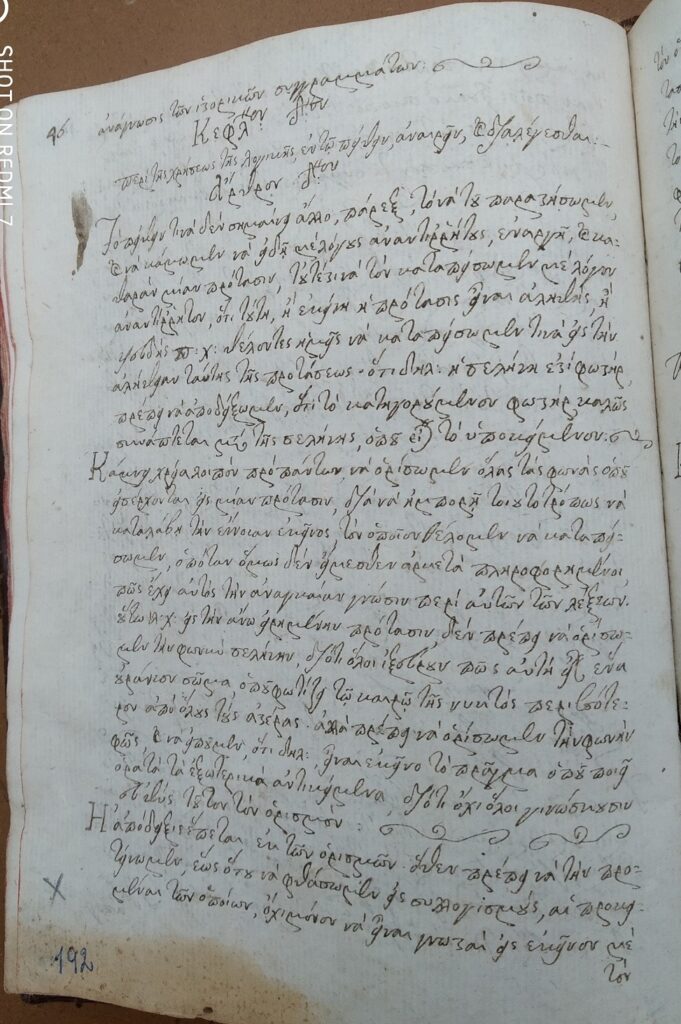 SHOT ON REDMI 7
96
ἀνάγνωσις τῶν ἱστορικῶν συγγραμμάτων:
Κεφλ: 4ον
περὶ τῆς χρήσεως τῆς λογικῆς, ἐν τῷ πείθειν, ἀναιρεῖν, καὶ διαλέγεσθαι:
Ἄρθρον
Τὸ πείθειν τινὰ δὲν σημαίνει ἄλλο, πάρεξ, τὸ νὰ τοῦ παραστήσωμεν,
καὶ νὰ κάμωμεν νὰ ἰδῇ μὲ λόγους ἀναντιῤῥήτους, ἐναργῆ, καὶ κα-
θαρὰν μίαν πρότασιν, τουτέστι νὰ τὸν καταπείσωμεν μὲ λόγον
ἀναντίῤῥητον, ὅτι τούτη, ἢ ἐκείνη ἡ πρότασις εἶναι ἀληθὴς, ἢ
ψευδής π: χ: θέλοντες ἡμεῖς νὰ καταπείσωμεν τινὰ εἰς τὴν
ἀλήθειαν ταύτης τῆς προτάσεως· ὅτι δηλ: ἡ σελήνη ἐστὶ φωστήρ,
πρέπει νὰ ἀποδείξωμεν, ὅτι τὸ κατηγορούμενον φωστήρ, καλῶς
συνάπτεται μετὰ τῆς σελήνης, ὁποῦ εἶναι τὸ ὑποκείμενον:
Κάμνει χρεία λοιπὸν πρὸ πάντων, νὰ ὁρίσωμεν ὅλας τὰς φωνὰς ὁποῦ
εἰσέρχονται εἰς μίαν πρότασιν, διὰ νὰ ἠμπορῇ τοιουτοτρόπως νὰ
καταλάβῃ τὴν ἔννοιαν ἐκεῖνος, τὸν ὁποῖον θέλομεν νὰ καταπεί-
σωμεν, ὁπόταν ὅμως δὲν εἴμεσθεν ἀρκετὰ πληροφορημένοι
πῶς ἔχει αὐτὸς τὴν ἀναγκαίαν γνῶσιν περὶ αὐτῶν τῶν λέξεων.
οὕτω π: χ: εἰς τὴν ἄνω εἰρημένην πρότασιν, δὲν πρέπει νὰ ὁρίσω-
μεν τὴν φωνὴν σελήνην, διότι ὅλοι ἐξεύρουν πῶς αὐτὴ εἶναι ἕνα
οὐράνιον σῶμα, ὁποῦ φωτίζει τῷ καιρῷ τῆς νυκτὸς περισσότε-
ρον ἀπὸ ὅλους τοὺς ἀστέρας· ἀλλὰ πρέπει νὰ ὁρίσωμεν τὴν φωνὴν
φῶς, καὶ νὰ εἰποῦμεν, ὅτι δηλ: εἶναι ἐκεῖνο τὸ πρᾶγμα ὁποῦ ποιεῖ
ὁρατὰ τὰ ἐξωτερικὰ ἀντικείμενα, διότι ὄχι ὅλοι γινώσκουσιν
τοῦτον τὸν ὁρισμὸν:
Ἡ ἀπόδειξις ἕπεται ἐκ τῶν ὁρισμῶν· ὅθεν πρέπει νὰ τὴν προ-
τείνωμεν, ἕως ὅτου νὰ φθάσωμεν εἰς συλλογισμοὺς, αἱ προκεί-
μεναι τῶν ὁποίων, ὄχι μόνον νὰ εἶναι γνωσταὶ εἰς ἐκεῖνον μὲ
τὸν
192